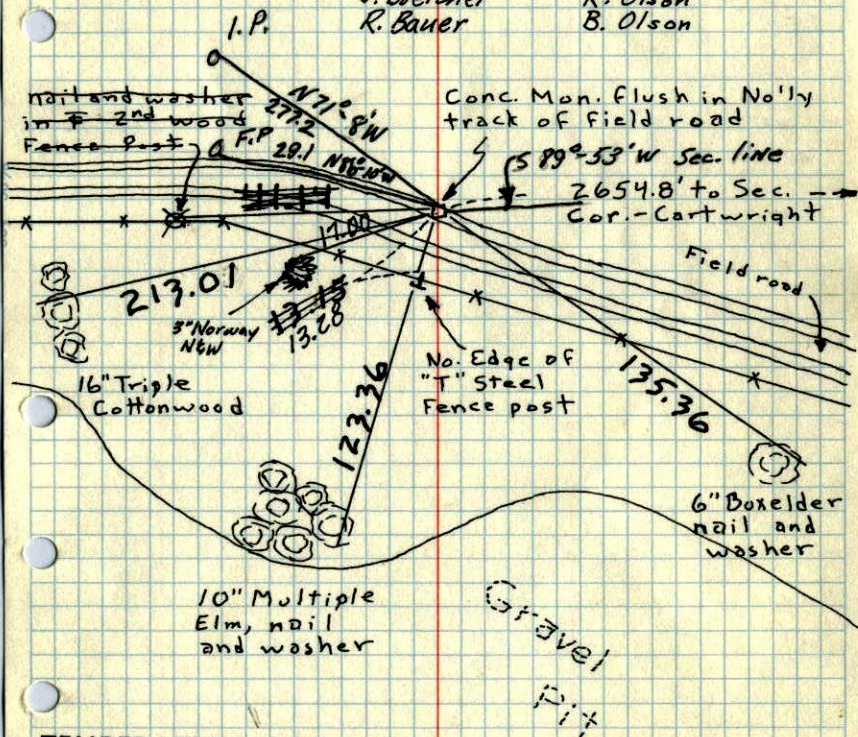 R. Bauer
B. Olson
I.P.
N71°-8'W
277.2
nail and washer
in F 2nd wood
Fence Post
F.P
28.1
Conc. Mon. flush in No'ly
track of field road
S 89°-53'W Sec. line
2654.8' to Sec.
Cor.-Cartwright
Field road
17.00
213.01
3" Norway
N&W
13.15
13.28
No. Edge of
"T" Steel
Fence post
16" Triple
Cottonwood
123.36
135.36
6" Boxelder
nail and
washer
10" Multiple
Elm, nail
and washer
Gravel
Pit